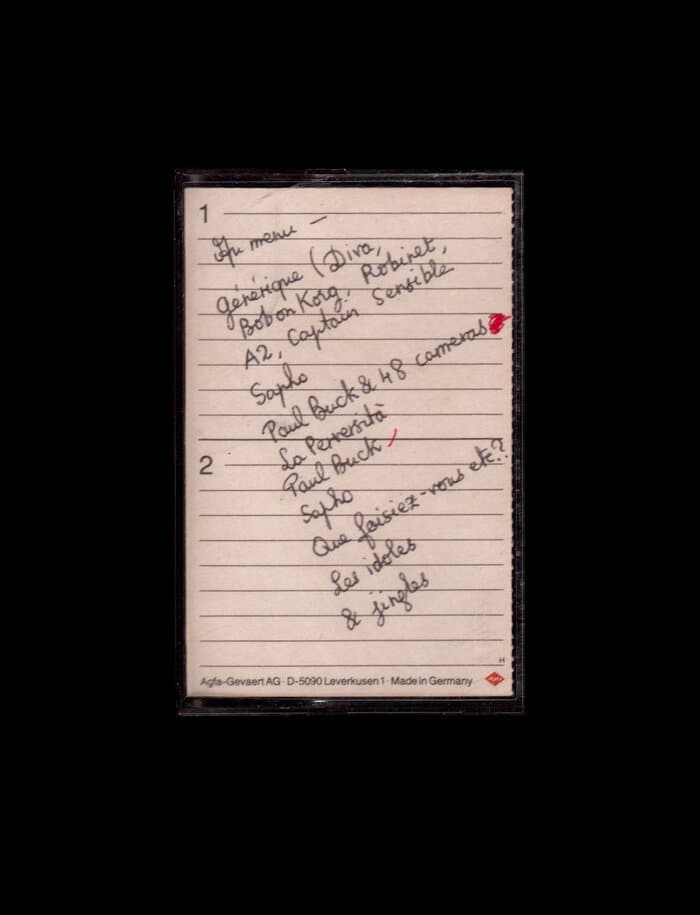 1
Au menu —
Générique (Diva,
Bobon Korg, Robinet,
A2, Captain Sensible
Sapho
Paul Buck & 48 cameras
La Perversità
2
Paul Buck
Sapho
Que faisiez-vous etc?
Les idoles
& jingles
H
Agfa-Gevaert AG · D-5090 Leverkusen 1 · Made in Germany